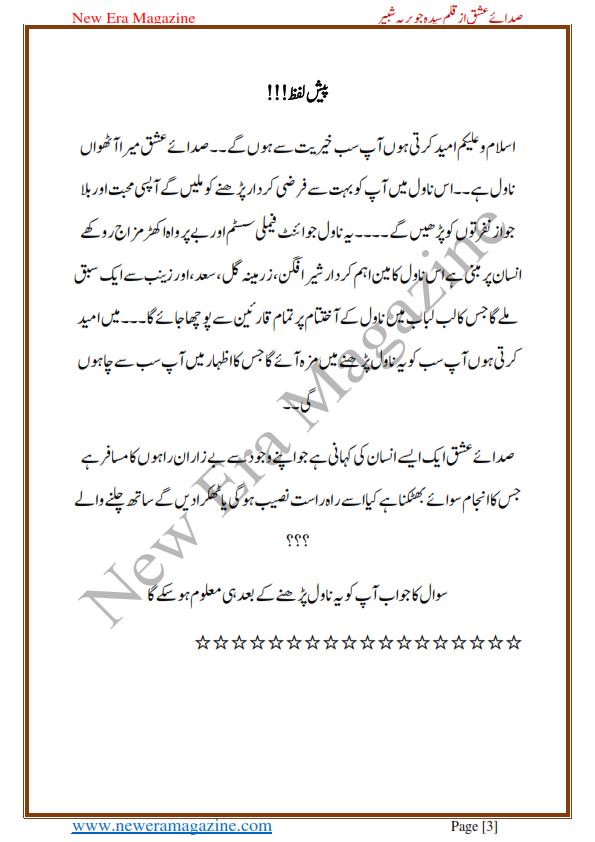 New Era Magazine صدائے عشق از قلم سیدہ جویریہ شبیر
پیش لفظ!!!
اسلام و علیکم امید کرتی ہوں آپ سب خیریت سے ہوں گے۔۔ صدائے عشق میرا آٹھواں
ناول ہے۔۔ اس ناول میں آپ کو بہت سے فرضی کردار پڑھنے کو ملیں گے آپسی محبت اور بلا
جواز نفرتوں کو پڑھیں گے۔۔۔۔ یہ ناول جوائنٹ فیملی سسٹم اور بے پرواہ اکھڑ مزاج روکھے
انسان پر مبنی ہے اس ناول کا مین اہم کردار شیر افگن، زرمینہ گل، سعد، اور زینب سے ایک سبق
ملے گا جس کا لب لباب میں ناول کے آختتام پر تمام قارئین سے پوچھا جائے گا۔۔۔ میں امید
کرتی ہوں آپ سب کو یہ ناول پڑھنے میں مزہ آئے گا جس کا اظہار میں آپ سب سے چاہوں
گی۔۔
صدائے عشق ایک ایسے انسان کی کہانی ہے جو اپنے وجود سے بے زار ان راہوں کا مسافر ہے
جس کا انجام سوائے بھٹکنا ہے کیا اسے راہ راست نصیب ہوگی یا ٹھکرا دیں گے ساتھ چلنے والے
؟؟؟
سوال کا جواب آپ کو یہ ناول پڑھنے کے بعد ہی معلوم ہو سکے گا
☆☆☆☆☆☆☆☆☆☆☆☆☆☆☆☆☆☆
New Era Magazine
www.neweramagazine.com Page [3]